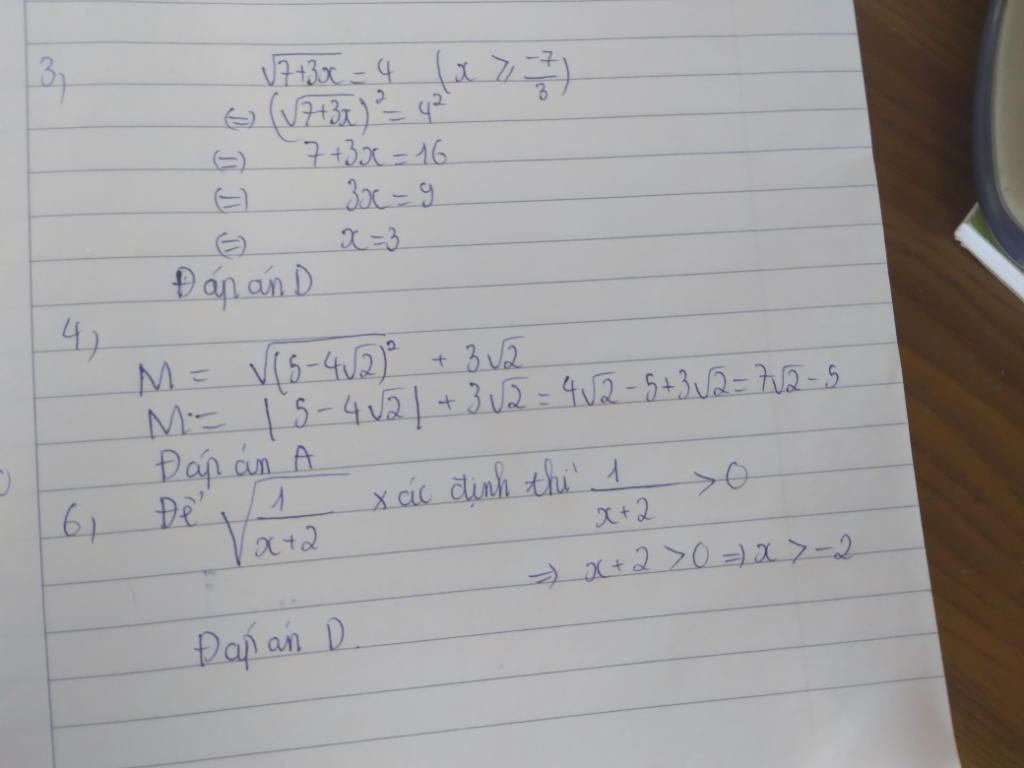 3) √(7+3x) = 4 (x ≥ -7/3)
⇔ (√(7+3x))² = 4²
⇔ 7+3x = 16
⇔ 3x = 9
⇔ x = 3
Đáp án D
4)
M = √((5-4√2)²) + 3√2
M = |5-4√2| + 3√2 = 4√2 - 5 + 3√2 = 7√2 - 5
Đáp án A
6) Để √(1/(x+2)) xác định thì 1/(x+2) > 0
⇒ x+2 > 0 ⇒ x > -2
Đáp án D.